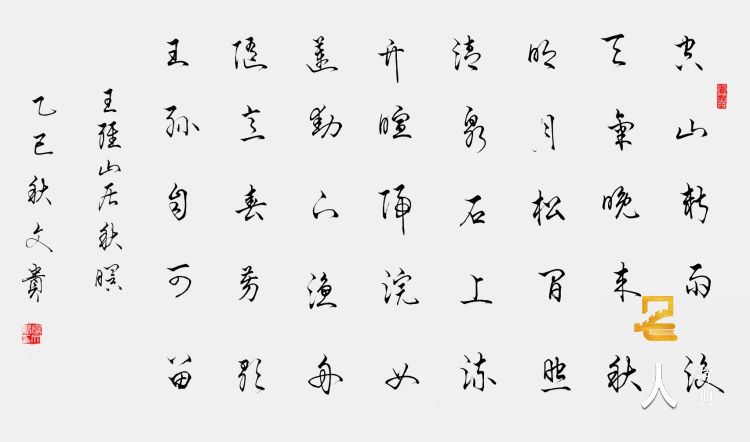 空山新雨後
天氣晚來秋
明月松間照
清泉石上流
竹喧歸浣女
蓮動下漁舟
隨意春芳歇
王孫自可留
王維山居秋暝
乙巳秋文貴
人